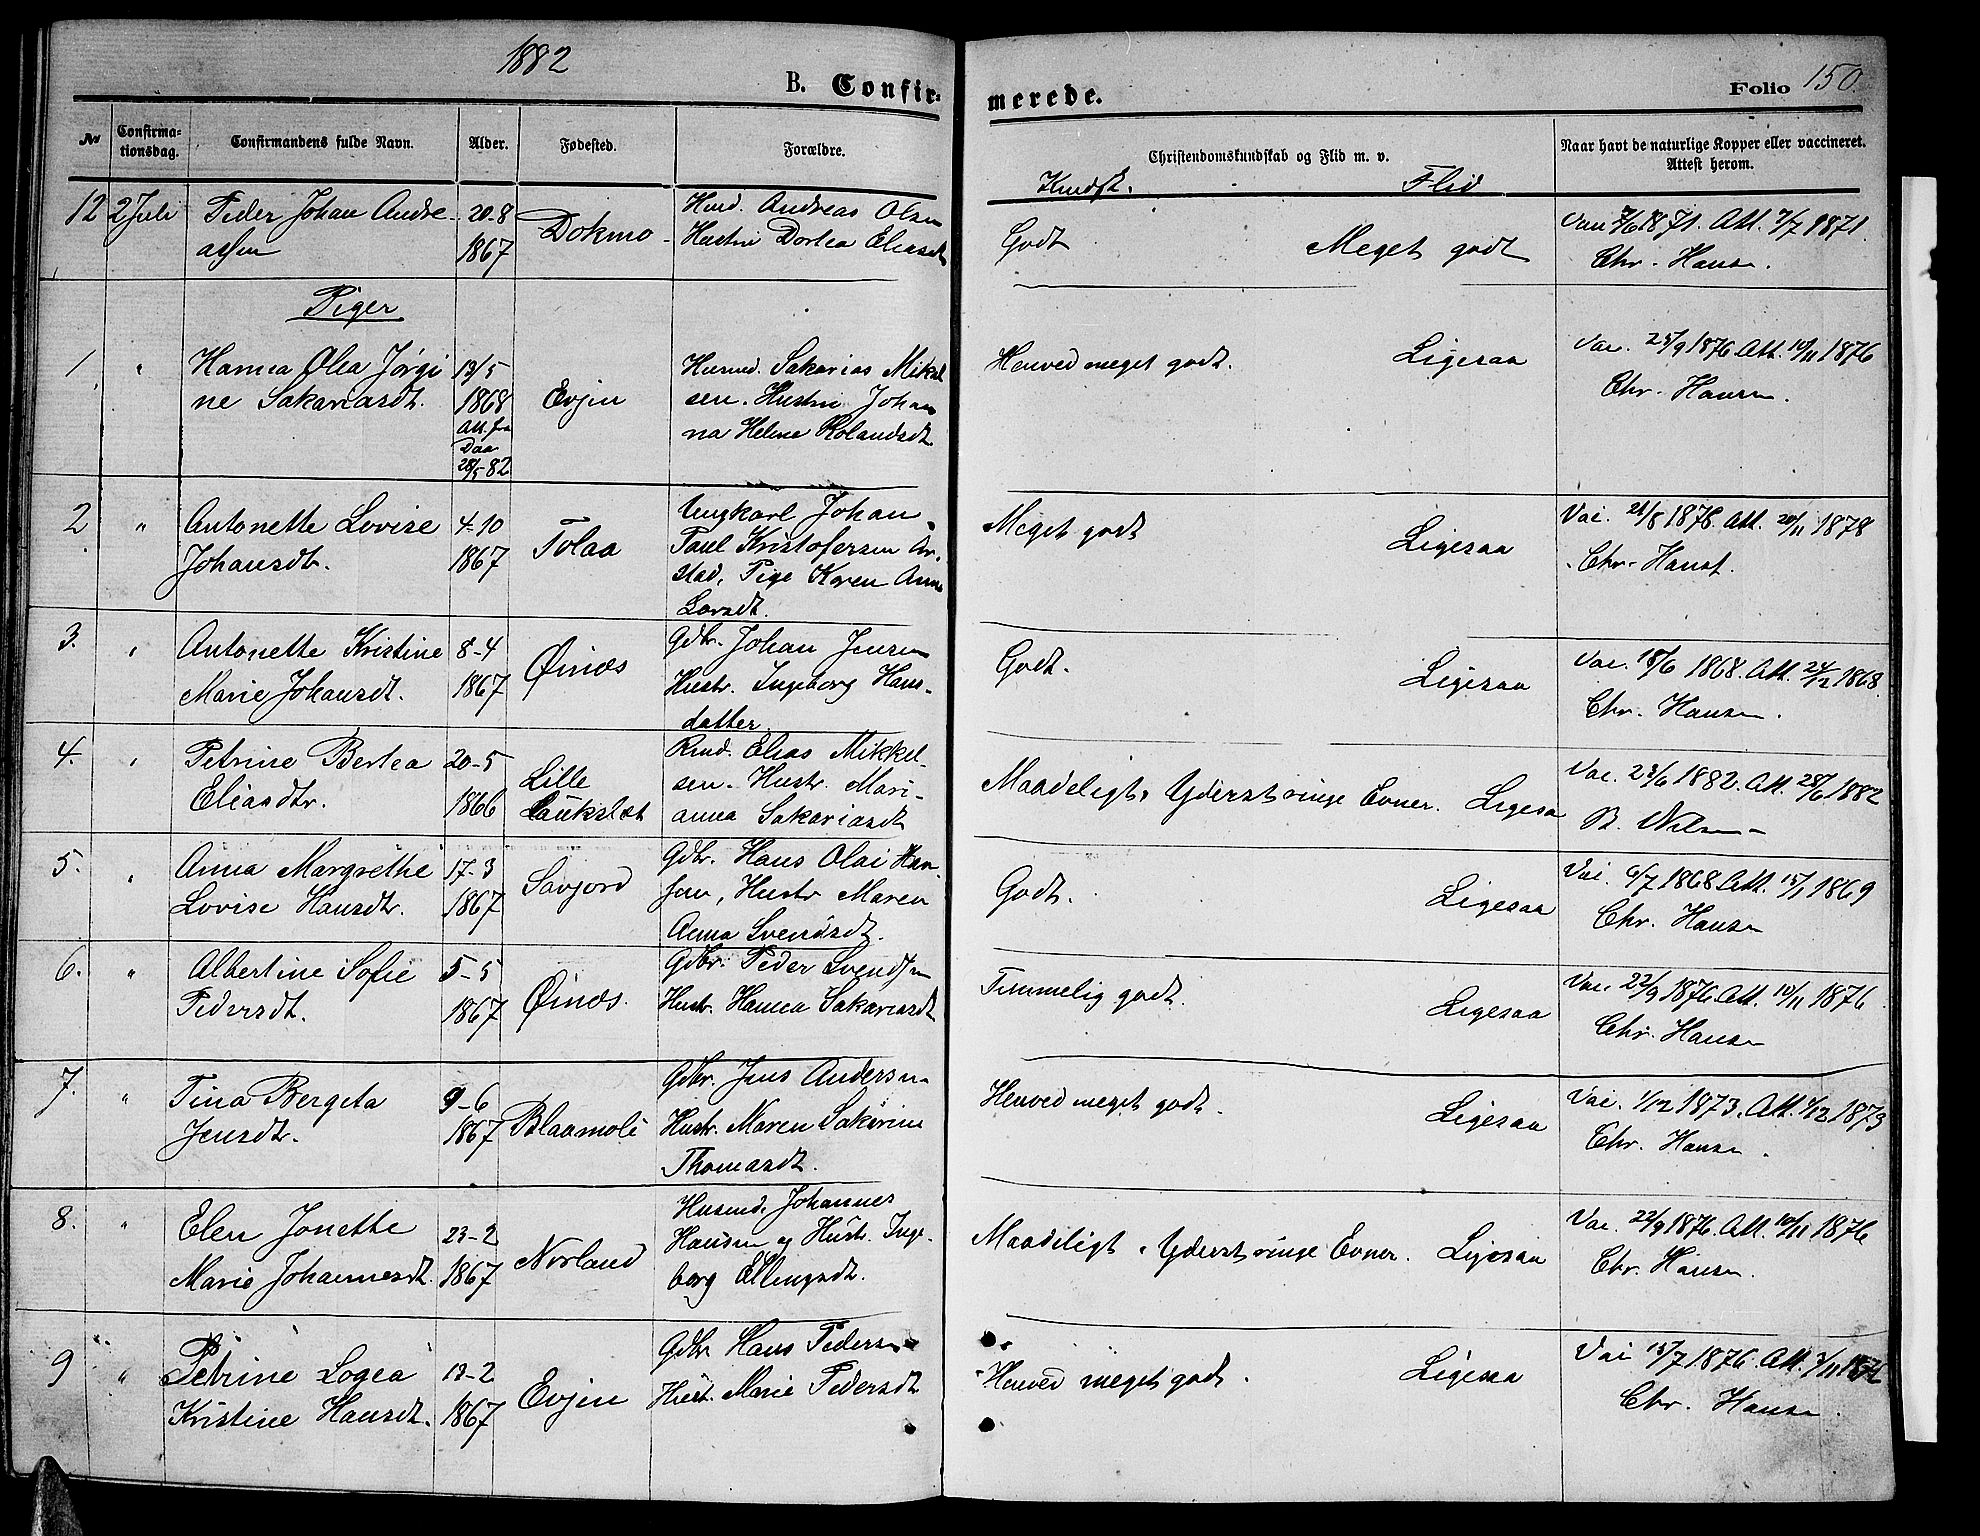 1882
B. Confirmerede.
Folio 150
№ Confirmationsdag. Confirmandens fulde Navn. Alder. Fødested. Forældre. Christendomskundskab og Flid m. v. Naar havt de naturlige Kopper eller vaccineret. Attest herom.
Kundsk. Flid
12 2 Juli Peder Johan Andre-
assen
20-8
1867
Dokmo
Husd. Andreas Olsen
Hustru Dortea Eliasdt
Godt Meget godt
1871. Att. 7/7 1871.
Chr. Hansen.
Piger
1. " Hanna Olea Jørgi
ne Sakariasdt.
13/5
1868
Att. fra
Daa
28/5-82
Evjen
Husmd. Sakarias Mikkel
sen. Hustru Johan
na Helene Rolandsdt.
Henved meget godt. Ligesaa
Vac. 25/9 1876 Att. 10/11 1876
Chr. Hansen.
2 " Antonette Lovise
Johansdtr.
4-10
1867
Tolaa
Ungkarl Johan
Paul Kristofersen Ar-
stad, Pige Karen Anna
Larsdt.
Meget godt Ligesaa
Vac. 21/8 1878. Att. 20/11 1878
Chr. Hansf.
3. " Antonette Kristine
Marie Johansdt.
8-4
1867
Øinæs
Gdbr. Johan Jensen
Hustr. Ingeborg Hans-
datter
Godt. Ligesaa
Vac. 15/6 1868. Att. 24/12 1868.
Chr. Hansen.
4. " Petrine Bertea
Eliasdtr.
20-5
1866
Lille
Laukslet
Rmd. Elias Mikkel-
sen. Hustr. Mari-
anna Sakariasdt
Maadeligt. Yderst ringe Evner. Ligesaa
Vac. 23/6 1882. Att. 28/6 1882
B. Nilsen
5. " Anna Margrethe
Lovise Hansdtr.
17-3
1867
Savjord
Gdbr. Hans Olai Han-
sen, Hustr Maren
Anna Svendsdt.
Godt. Ligesaa
Vac. 6/7 1868. Att. 15/1 1869
Chr. Hansen
6. " Albertine Sofie
Pedersdt.
5-5
1867
Øinæs.
Gdbr. Peder Svendsen
Hustr. Hanna Sakariasdt
Temmelig godt. Ligesaa
Vac. 22/9 1876. Att. 10/11 1876
Chr. Hansen
7. " Tina Bergeta
Jensdtr.
9-6
1867
Blaamoli
Gdbr. Jens Andersen
Hustr. Maren Sakarine
Thomasdt.
Henved meget godt. Ligesaa
Vac. 1/12 1873. Att. 1/12 1873
Chr. Hansen.
8. " Elen Jonette
Marie Johannesdt.
23-2
1867
Norland
Husmd. Johannes
Hansen og Hustr. Inge-
borg Ellingsdt.
Maadeligt. Yderst ringe Evner. Ligesaa
Vac. 22/9 1876. Att. 10/11 1876
Chr. Hansen.
9 " Petrine Logea
Kristine Hansdt.
12-2
1867
Evjen
Gdbr Hans Pedersen
Hust. Marie Pedersdt
Henved meget godt. Ligesaa
Vac 15/7 1876. Att.
Chr. Hansen.